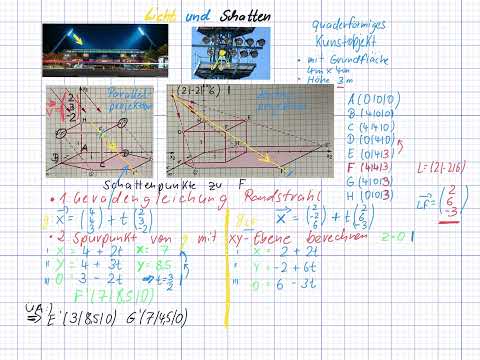 Licht und Schatten
quaderförmiges
Kunstobjekt
• mit Grundfläche
4m x 4m
• Höhe 3m
Parallel-
projektion
(2|-2|6)
A (0|0|0)
B (4|0|0)
C (4|4|0)
D (0|4|0)
E (0|4|3)
F (4|4|3)
G (4|0|3)
H (0|0|3)
L=(2|-2|6)
LF = (2 6 -3)
Schattenpunkte zu F
• 1 Geradengleichung Randstrahl
g: x = (4 4 3) + t (2 3 -2)
g LF
x = (2 -2 6) + t (2 6 -3)
• 2. Spurpunkt von g mit xy-Ebene berechnen z=0
I x = 4 + 2t x = 7
II y = 4 + 3t y = 8,5
III 0 = 3 - 2t => t = 3/2
I x = 2 + 2t
II y = -2 + 6t
III 0 = 6 - 3t
F'(7|8,5|0)
ÜA:
=> E'(3|8,5|0) G'(7|4,5|0)